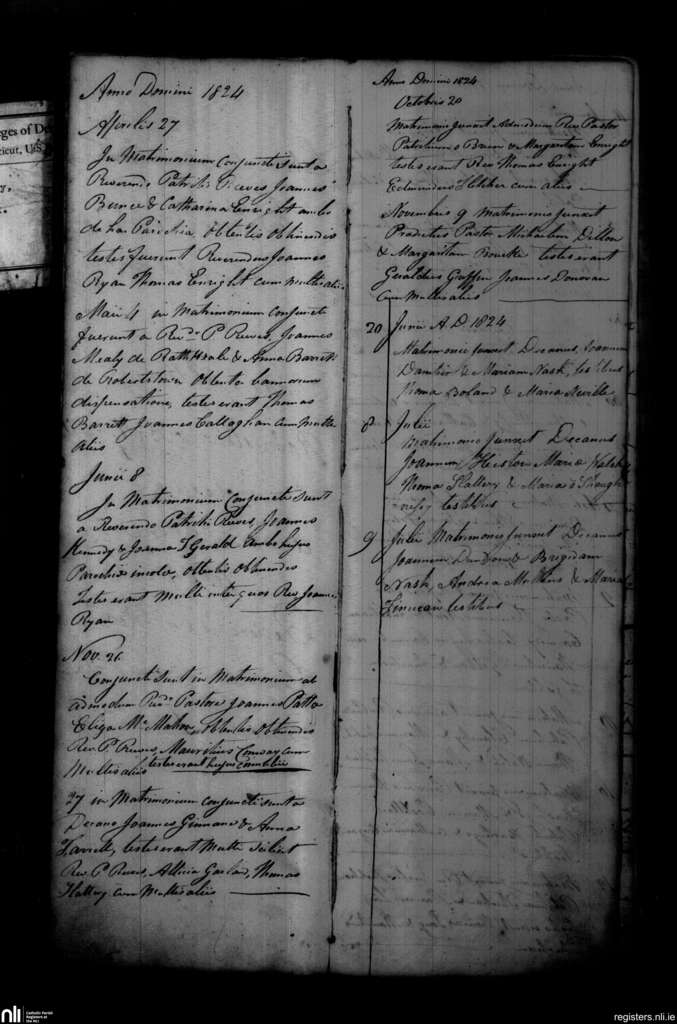 ges of De
ticut, U.S.
Anno Domini 1824
Aprilis 27
In Matrimonium Conjuncti Sunt a
Reverendo Patritio Reeves Joannes
Bunce & Catharina Enright ambo
de hac Parochia, obtentis obtinendis
testes fuerunt Reverendus Joannes
Ryan Thomas Enright cum multis aliis
Maii 4 in Matrimonium Conjuncti
fuerunt a Revdo P Reeves, Joannes
Mealy de Rathkeale & Anna Barrett
de Robertstown obtenta bannorum
dispensatione, testes erant Thomas
Barrett Joannes Callaghan cum multis
aliis
Junii 8
In Matrimonium Conjuncti Sunt
a Reverendo Patritio Reeves, Joannes
Kennedy & Joanna FGerald ambo hujus
Parochiæ incolæ, obtentis obtinendis
testes erant multi inter quos Rev Joannes
Ryan
Nov. 26
Conjuncti Sunt in Matrimonium ab
admodum Revdo Pastore Joannes
& Eliza Mc Mahon, obtentis obtinendis
Rev P Reeves, Mauritius Conway cum
Multis aliis testes erant hujus
27 in Matrimonium Conjuncti Sunt a
Decano Joannes & Anna
Farrell, testes erant Multi scilicet
Rev P Reeves, Thomas
Flattery cum Multis aliis
Anno Domini 1824
Octobris 20
Matrimonio Junxit Admodum Rev Pastor
Patritium o Brien & Margaritam Enright
testes erant Rev Thomas Enright
Edmundus cum aliis
Novembris 9 Matrimonio Junxit
Prædictus Pastor Michaelem Dillon
& Margaritam Bourke testes erant
Geraldus Griffin Joannes Donovan
Cum Multis aliis
20 Junii A D 1824
Matrimonio Junxit Decanus, Joannem
& Mariam Nash, testibus
Thoma Boland & Maria Neville
8 Julii
Matrimonio Junxit Decanus
Joannem Hestor Maria
Thoma Slattery & Maria o Shaugh
nessy testibus
9 Julii Matrimonio Junxit Decanus
Joannem Dundon & Brigidam
Nash, Andrea & Maria
Finucan testibus
nli Catholic Parish
Registers at
The NLI
registers.nli.ie